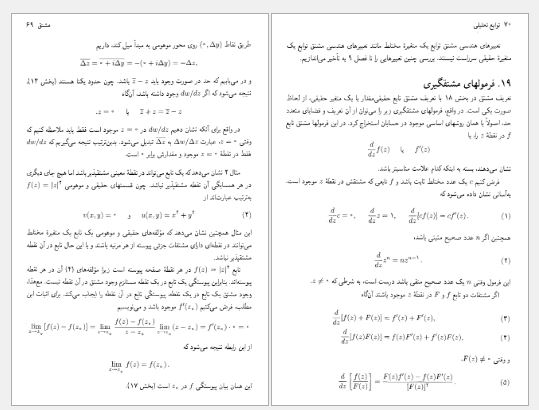 ۷۰ توابع تحلیلی
تعبیرهای هندسی مشتق توابع یک متغیرهٔ مختلط مانند تعبیرهای هندسی مشتق توابع یک
متغیرهٔ حقیقی سرراست نیستند. بررسی چنین تعبیرهایی را تا فصل ۹ به تأخیر می‌اندازیم.
۱۹. فرمولهای مشتقگیری
تعریف مشتق در بخش ۱۸ با تعریف مشتق تابع حقیقی‌مقدار با یک متغیر حقیقی، از لحاظ
صورت یکی است. در واقع، فرمولهای مشتقگیری زیر را می‌توان از آن تعریف و قضایای متعدد
حد، اصولاً با همان روشهای اساسی موجود در حسابان استخراج کرد. در این فرمولها مشتق تابع
f در نقطهٔ z، را با
d/dz f(z) یا f′(z)
نشان می‌دهند، بسته به اینکه کدام علامت مناسبتر باشد.
فرض کنیم c یک عدد مختلط ثابت باشد و f تابعی که مشتقش در نقطهٔ z موجود است.
به‌آسانی نشان داده می‌شود که
(۱) d/dz c = ۰, d/dz z = ۱, d/dz [cf(z)] = cf′(z).
همچنین اگر n عدد صحیح مثبتی باشد،
(۲) d/dz zⁿ = nzⁿ⁻¹.
این فرمول وقتی n یک عدد صحیح منفی باشد درست است، به شرطی که z ≠ ۰.
اگر مشتقات دو تابع f و F در نقطهٔ z موجود باشند، آنگاه
(۳) d/dz [f(z) + F(z)] = f′(z) + F′(z),
(۴) d/dz [f(z)F(z)] = f(z)F′(z) + f′(z)F(z),
و وقتی F(z) ≠ ۰،
(۵) d/dz [f(z)/F(z)] = (F(z)f′(z) − f(z)F′(z))/[F(z)]².
مشتق ۶۹
طریق نقاط (۰, Δy) روی محور موهومی به مبدأ میل کند، داریم
Δz̅ = ۰ + iΔy̅ = −(۰ + iΔy) = −Δz,
و در می‌یابیم که حد در صورت وجود باید z̅ − z باشد. چون حدود یکتا هستند (بخش ۱۴)،
نتیجه می‌شود که اگر dw/dz وجود داشته باشد، آنگاه
z̅ + z = z̅ − z یا z = ۰.
در واقع برای آنکه نشان دهیم dw/dz در z = ۰ موجود است فقط باید ملاحظه کنیم که
وقتی z = ۰، عبارت Δw/Δz به Δz̅ تبدیل می‌شود. بدین‌ترتیب نتیجه می‌گیریم که dw/dz
فقط در نقطهٔ z = ۰ موجود و مقدارش برابر ۰ است.
مثال ۲ نشان می‌دهد که یک تابع می‌تواند در نقطهٔ معینی مشتقپذیر باشد اما هیچ جای دیگری
در هر همسایگی آن نقطه مشتقپذیر نباشد. چون قسمتهای حقیقی و موهومی f(z) = |z|²
به‌ترتیب عبارت‌اند از
(۲) u(x, y) = x² + y² و v(x, y) = ۰
این مثال همچنین نشان می‌دهد که مؤلفه‌های حقیقی و موهومی یک تابع یک متغیرهٔ مختلط
می‌توانند در نقطه‌ای دارای مشتقات جزئی پیوسته از هر مرتبه باشند و با این حال تابع در آن نقطه
مشتقپذیر نباشد.
تابع f(z) = |z|² در هر نقطهٔ صفحه پیوسته است زیرا مؤلفه‌های (۲) آن در هر نقطه
پیوسته‌اند. بنابراین پیوستگی یک تابع در یک نقطه مستلزم وجود مشتق در آن نقطه نیست. مع‌هذا،
وجود مشتق یک تابع در یک نقطه، پیوستگی تابع در آن نقطه را ایجاب می‌کند. برای اثبات این
مطلب، فرض می‌کنیم f′(z₀) موجود باشد و می‌نویسیم
lim z→z₀ [f(z) − f(z₀)] = lim z→z₀ (f(z) − f(z₀))/(z − z₀) lim z→z₀ (z − z₀) = f′(z₀) · ۰ = ۰
از این رابطه نتیجه می‌شود که
lim z→z₀ f(z) = f(z₀).
این همان بیان پیوستگی f در z₀ است (بخش ۱۷).